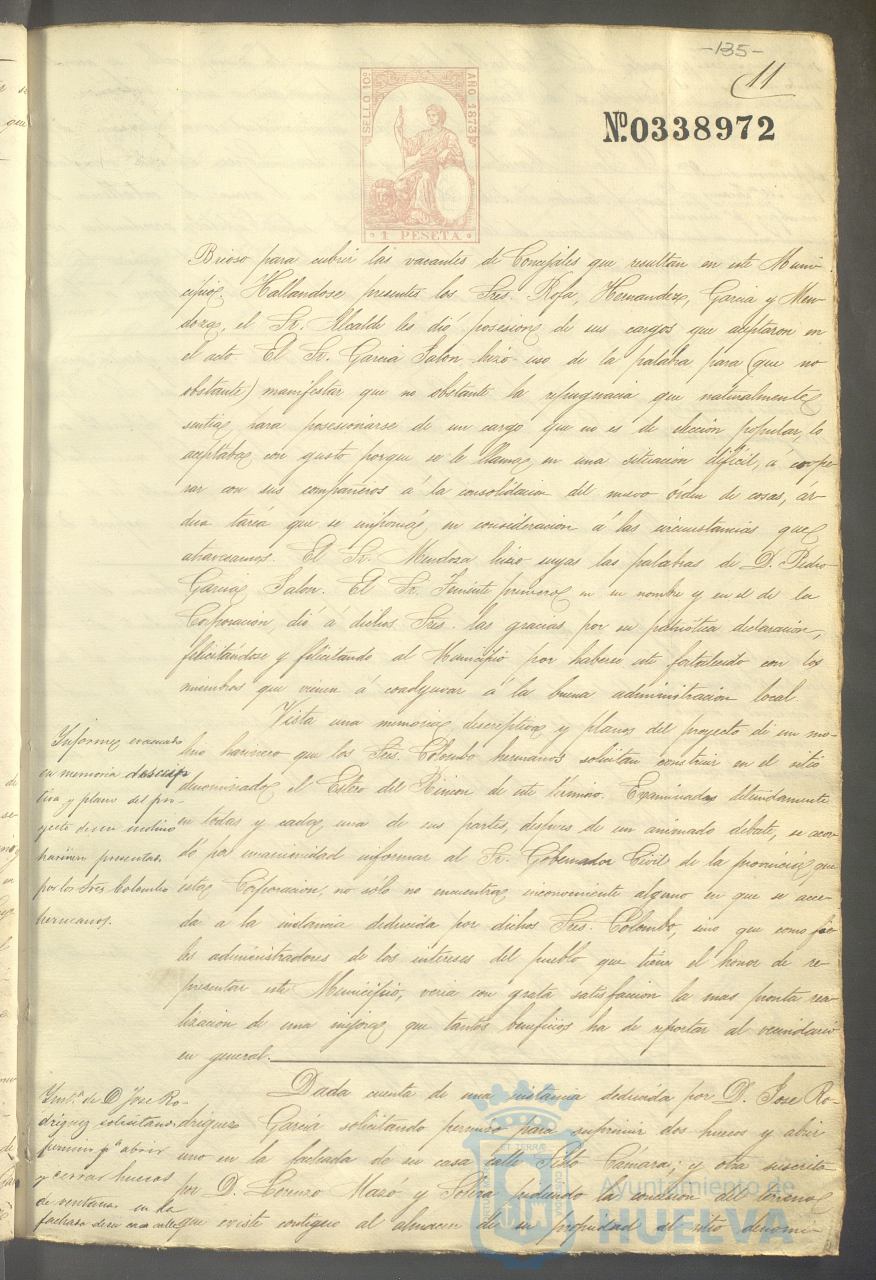 -135-
11
Nº.0338972
SELLO 10º AÑO 1873
1 PESETA
Brioso para cubrir las vacantes de Concejales que resultan en este Muni-
cipio. Hallandose presentes los Sres. Rofa, Hernandez, Garcia y Men-
doza, el Sr. Alcalde les dió posesion de sus cargos que aceptaron en
el acto El Sr. Garcia Salon hizo uso de la palabra para (que no
obstante) manifestar que no obstante la repugnacia que naturalmente
sentia para posesionarse de un cargo que no es de eleccion popular, lo
aceptaba con gusto porque se le llama en una situacion dificil, á coope
rar con sus compañeros á la consolidacion del nuevo órden de cosas, ár-
dua taréa que se imponia, en consideracion á las circunstancias que
atravesamos. El Sr. Mendoza hizo suyas las palabras de D. Pedro
Garcia Salon. El Sr. Teniente primero en su nombre y en el de la
Corporacion, dió á dichos Sres. las gracias por su patriótica declaracion,
felicitandose y felicitando al Municipio por haberse este fortalecido con los
miembros que vienen á coadyuvar á la buena administracion local.
Informe evacuado
en memoria descrip
tiva y plano del pro-
yecto de un molino
harinero presentado
por los Sres Colombo
hermanos.
Vista una memoria descriptiva y planos del proyecto de un mo-
lino harinero que los Sres. Colombo hermanos solicitan construir en el sitio
denominado el Estero del Rincon de este término. Examinados detenidamente
en todas y cada una de sus partes, despues de un animado debate, se acor
dó por unanimidad informar al Sr. Gobernador Civil de la provincia que
esta Corporacion, no sólo no encuentra inconveniente alguno en que se acce-
da a la instancia deducida por dichos Sres. Colombo, sino que como fie
les administradores de los intereses del pueblo que tiene el honor de re-
presentar este Municipio, veria con grata satisfacion la mas pronta rea-
lizacion de una mejora que tantos beneficios ha de reportar al vecindario
en general.
Inst.ª de D Jose Ro-
driguez solicitando
permiso pª abrir
y cerrar huecos
de ventanas en la
fachada de su casa calle
Dada cuenta de una instancia deducida por D. Jose Ro-
driguez Garcia solicitando permiso para suprimir dos huecos y abrir
uno en la fachada de su casa calle Sisto Cámara; y otra suscrita
por D. Lorenzo Mazó y Solera pidiendo la concesion del terreno
que existe contiguo al almacen de su propiedad al sitio denomi-
Ayuntamiento de
HUELVA